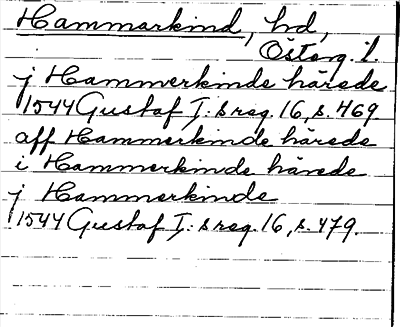 Hammarkind, hd,
Österg. l.
j Hammerkinde härede
1544 Gustaf I:s reg. 16, s. 469
aff Hammerkinde härede
i Hammerkinde härede
j Hammerkinde
1544 Gustaf I:s reg. 16, s. 479.